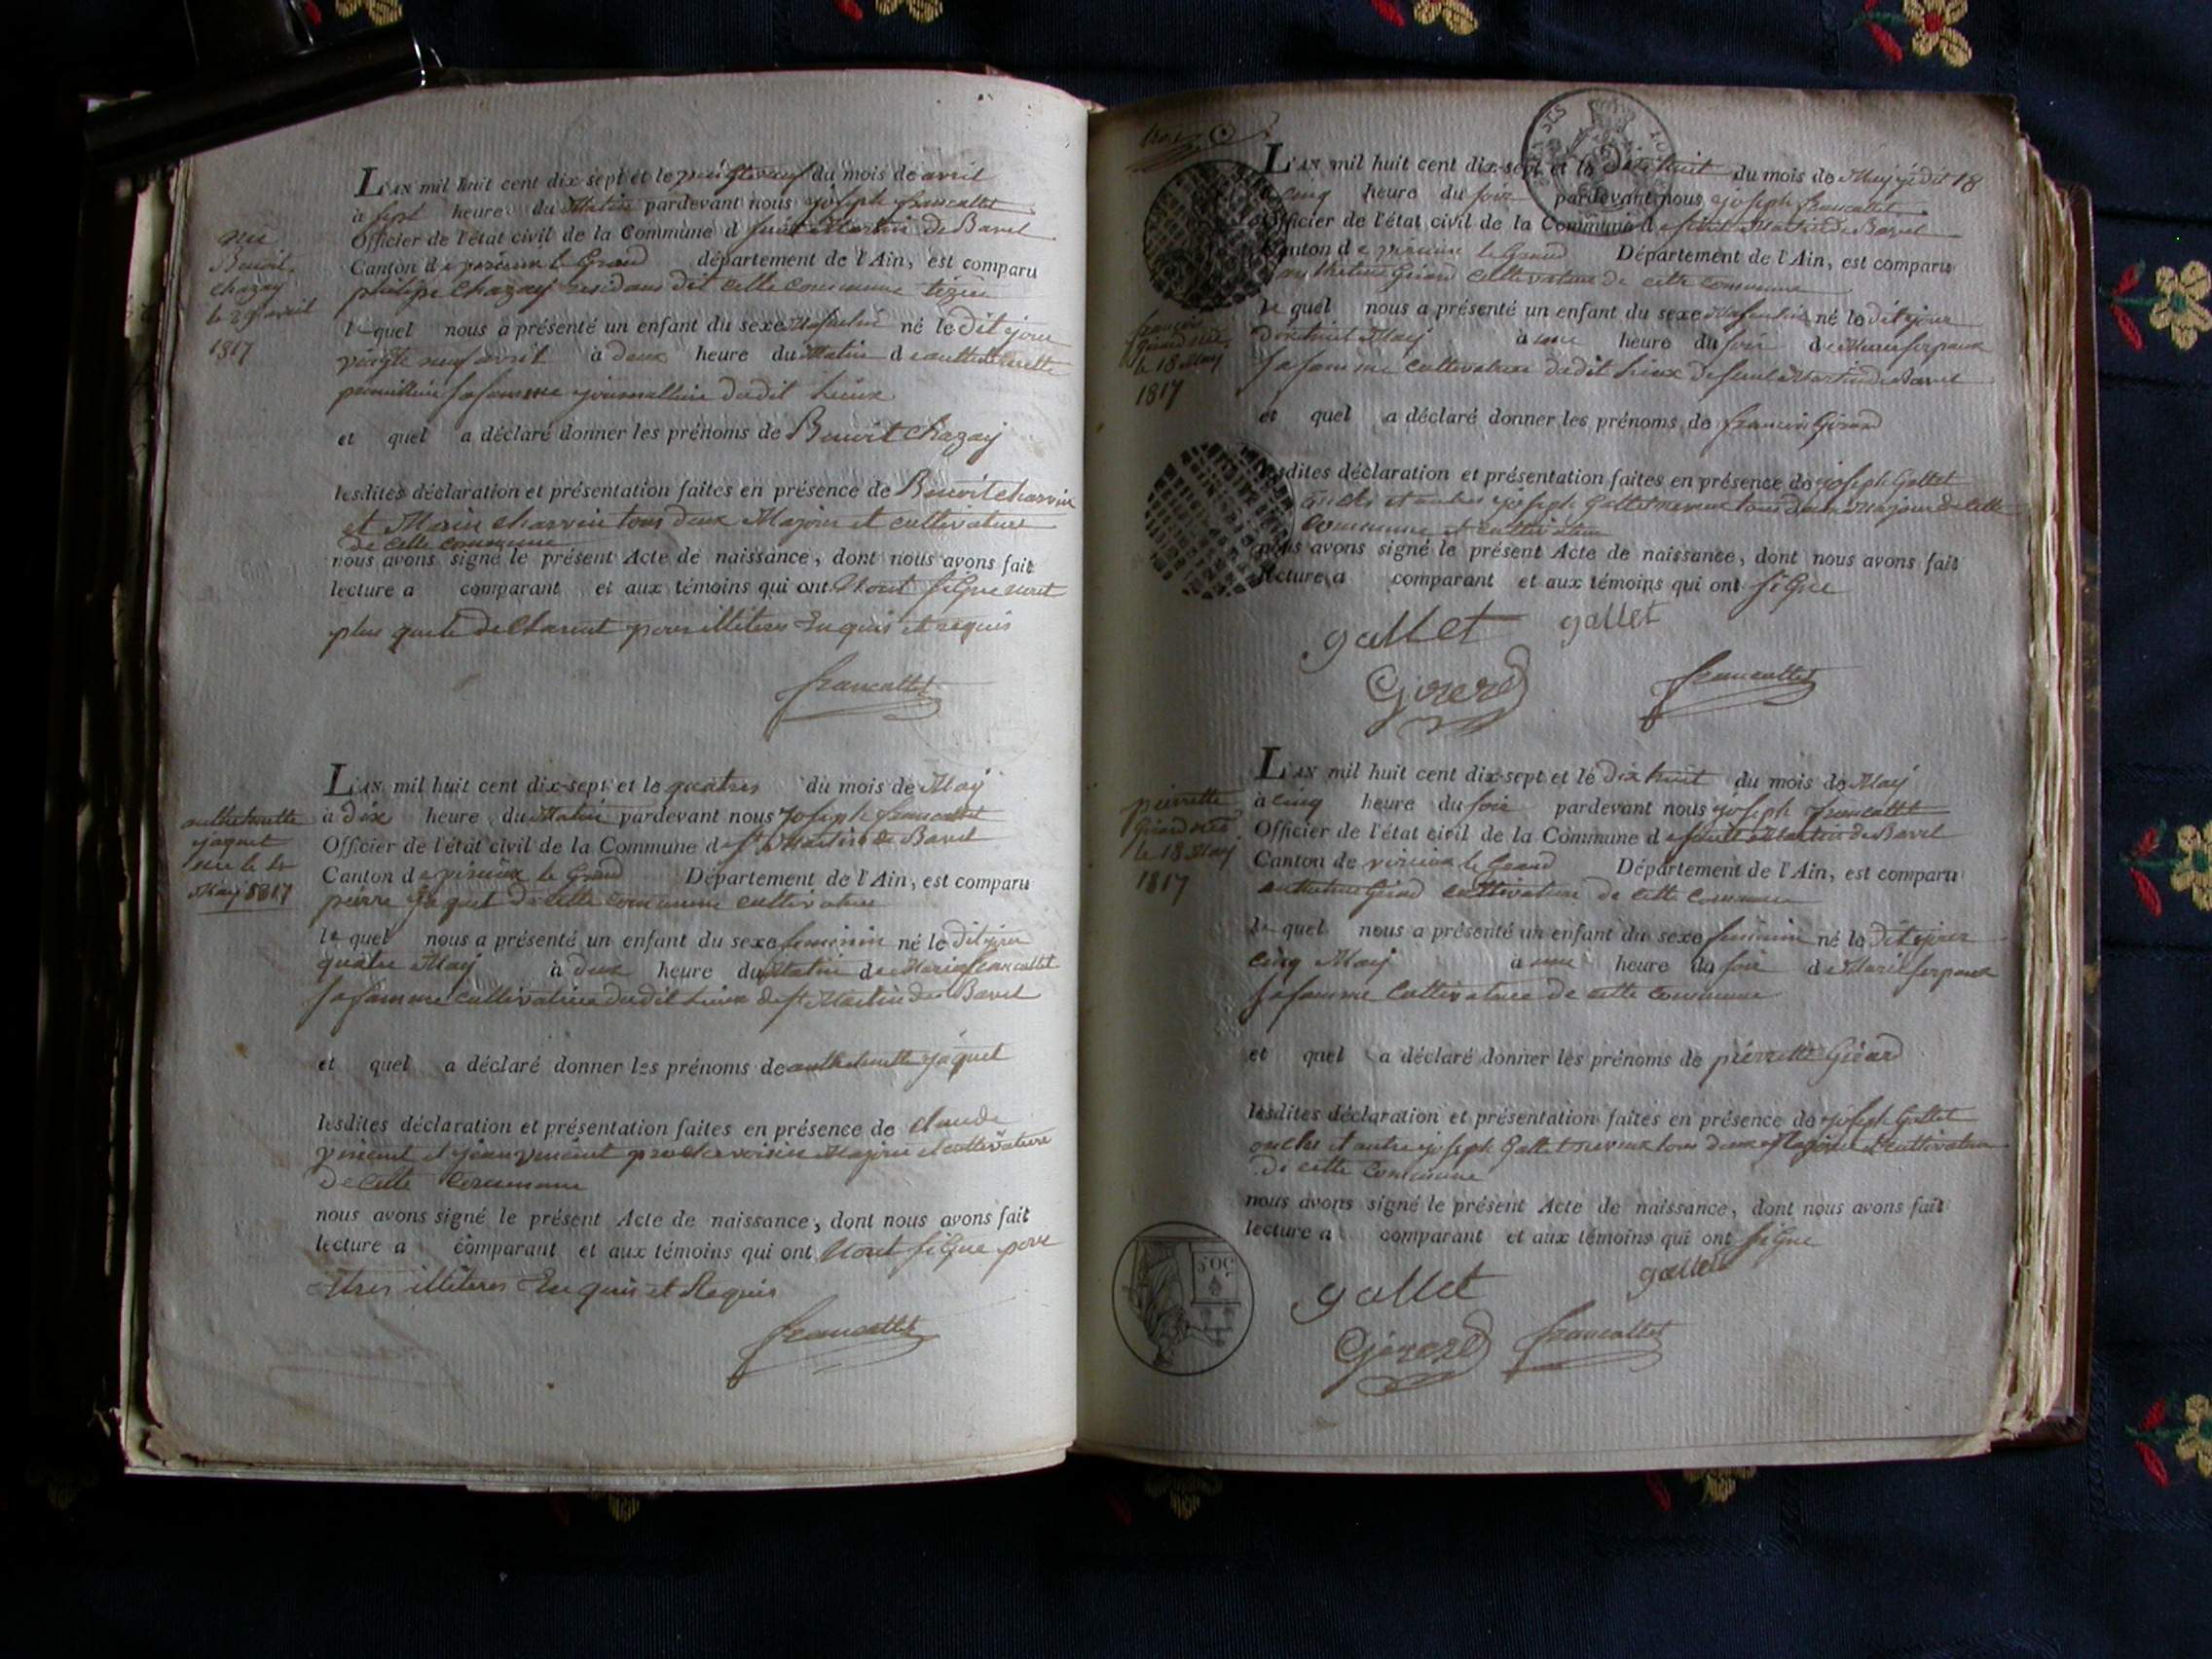 né
Benoit
Chazay
le 29 avril
1817
L'AN mil huit cent dix-sept et le vingt neuf du mois de avril
à sept heure du Matin pardevant nous joseph francallet
Officier de l'état civil de la Commune d saint Martin De Bavel
Canton de virieux le Grand département de l'Ain, est comparu
philipe Chazay residans dit cette commune
le quel nous a présenté un enfant du sexe Masculin né le Dit jour
vingte neuf avril à deux heure du Matin d
sa famme journalliere dudit Lieux
et quel a déclaré donner les prénoms de Benoit Chazay
lesdites déclaration et présentation faites en présence de Benoit charvin
et Marin charvin tous deux Majeur et cultivateur
de cette commune
nous avons signé le présent Acte de naissance, dont nous avons fait
lecture a comparant et aux témoins qui ont N'ont signe
plus que le declarent pour illiteres Enquis et requis
francallet
anthelmette
jaquet
née le 4
May 1817
L'AN mil huit cent dix-sept et le quatres du mois de May
à Dix heure du Matin pardevant nous joseph francallet
Officier de l'état civil de la Commune de st Martin de Bavel
Canton de virieux le Grand Département de l'Ain, est comparu
pierre jaquet de cette commune cultivateur
le quel nous a présenté un enfant du sexe feminin né le Dit jour
quatre May à deux heure du Matin de Marie francallet
sa famme cultivatrice dudit Lieux de st Martin de Bavel
et quel a déclaré donner les prénoms de anthelmette jaquet
lesdites déclaration et présentation faites en présence de claude
vincent et jean vincent proche voisin Majeur et cultivateur
De cette Commune
nous avons signé le présent Acte de naissance, dont nous avons fait
lecture a comparant et aux témoins qui ont N'ont signe pour
etres illiteres Enquis et Requis
francallet
françois
Girard né
le 18 May
1817
L'AN mil huit cent dix-sept et le Dix huit du mois de May je dit 18
à cinq heure du soir pardevant nous joseph francallet
Officier de l'état civil de la Commune de saint Martin de Bavel
Canton de virieux le Grand Département de l'Ain, est comparu
anthelme Girard cultivateur de cette commune
le quel nous a présenté un enfant du sexe Masculin né le dit jour
dixhuit May à une heure du soir de Marie serpaux
sa famme cultivatrice dudit Lieux de saint Martin de Bavel
et quel a déclaré donner les prénoms de francois Girard
lesdites déclaration et présentation faites en présence de joseph Gallet
oncles et autres joseph Gallet neveux tous deux majeur de cette
Commune et cultivateur
nous avons signé le présent Acte de naissance, dont nous avons fait
lecture a comparant et aux témoins qui ont signe
gallet gallet
Girerd francallet
pierrette
Girard née
le 18 May
1817
L'AN mil huit cent dix-sept et le dix huit du mois de May
à cinq heure du soir pardevant nous joseph francallet
Officier de l'état civil de la Commune de saint Martin de Bavel
Canton de virieux le Grand Département de l'Ain, est comparu
anthelme Girard cultivateur de cette commune
le quel nous a présenté un enfant du sexe feminin né le dit jour
cinq May à une heure du soir de Marie serpaux
sa famme Cultivatrice de cette commune
et quel a déclaré donner les prénoms de pierrette Girard
lesdites déclaration et présentation faites en présence de joseph Gallet
oncles et autre joseph Gallet neveux tous deux Majeur et cultivateur
de cette commune
nous avons signé le présent Acte de naissance, dont nous avons fait
lecture a comparant et aux témoins qui ont signe
gallet gallet
Girerd francallet
50C